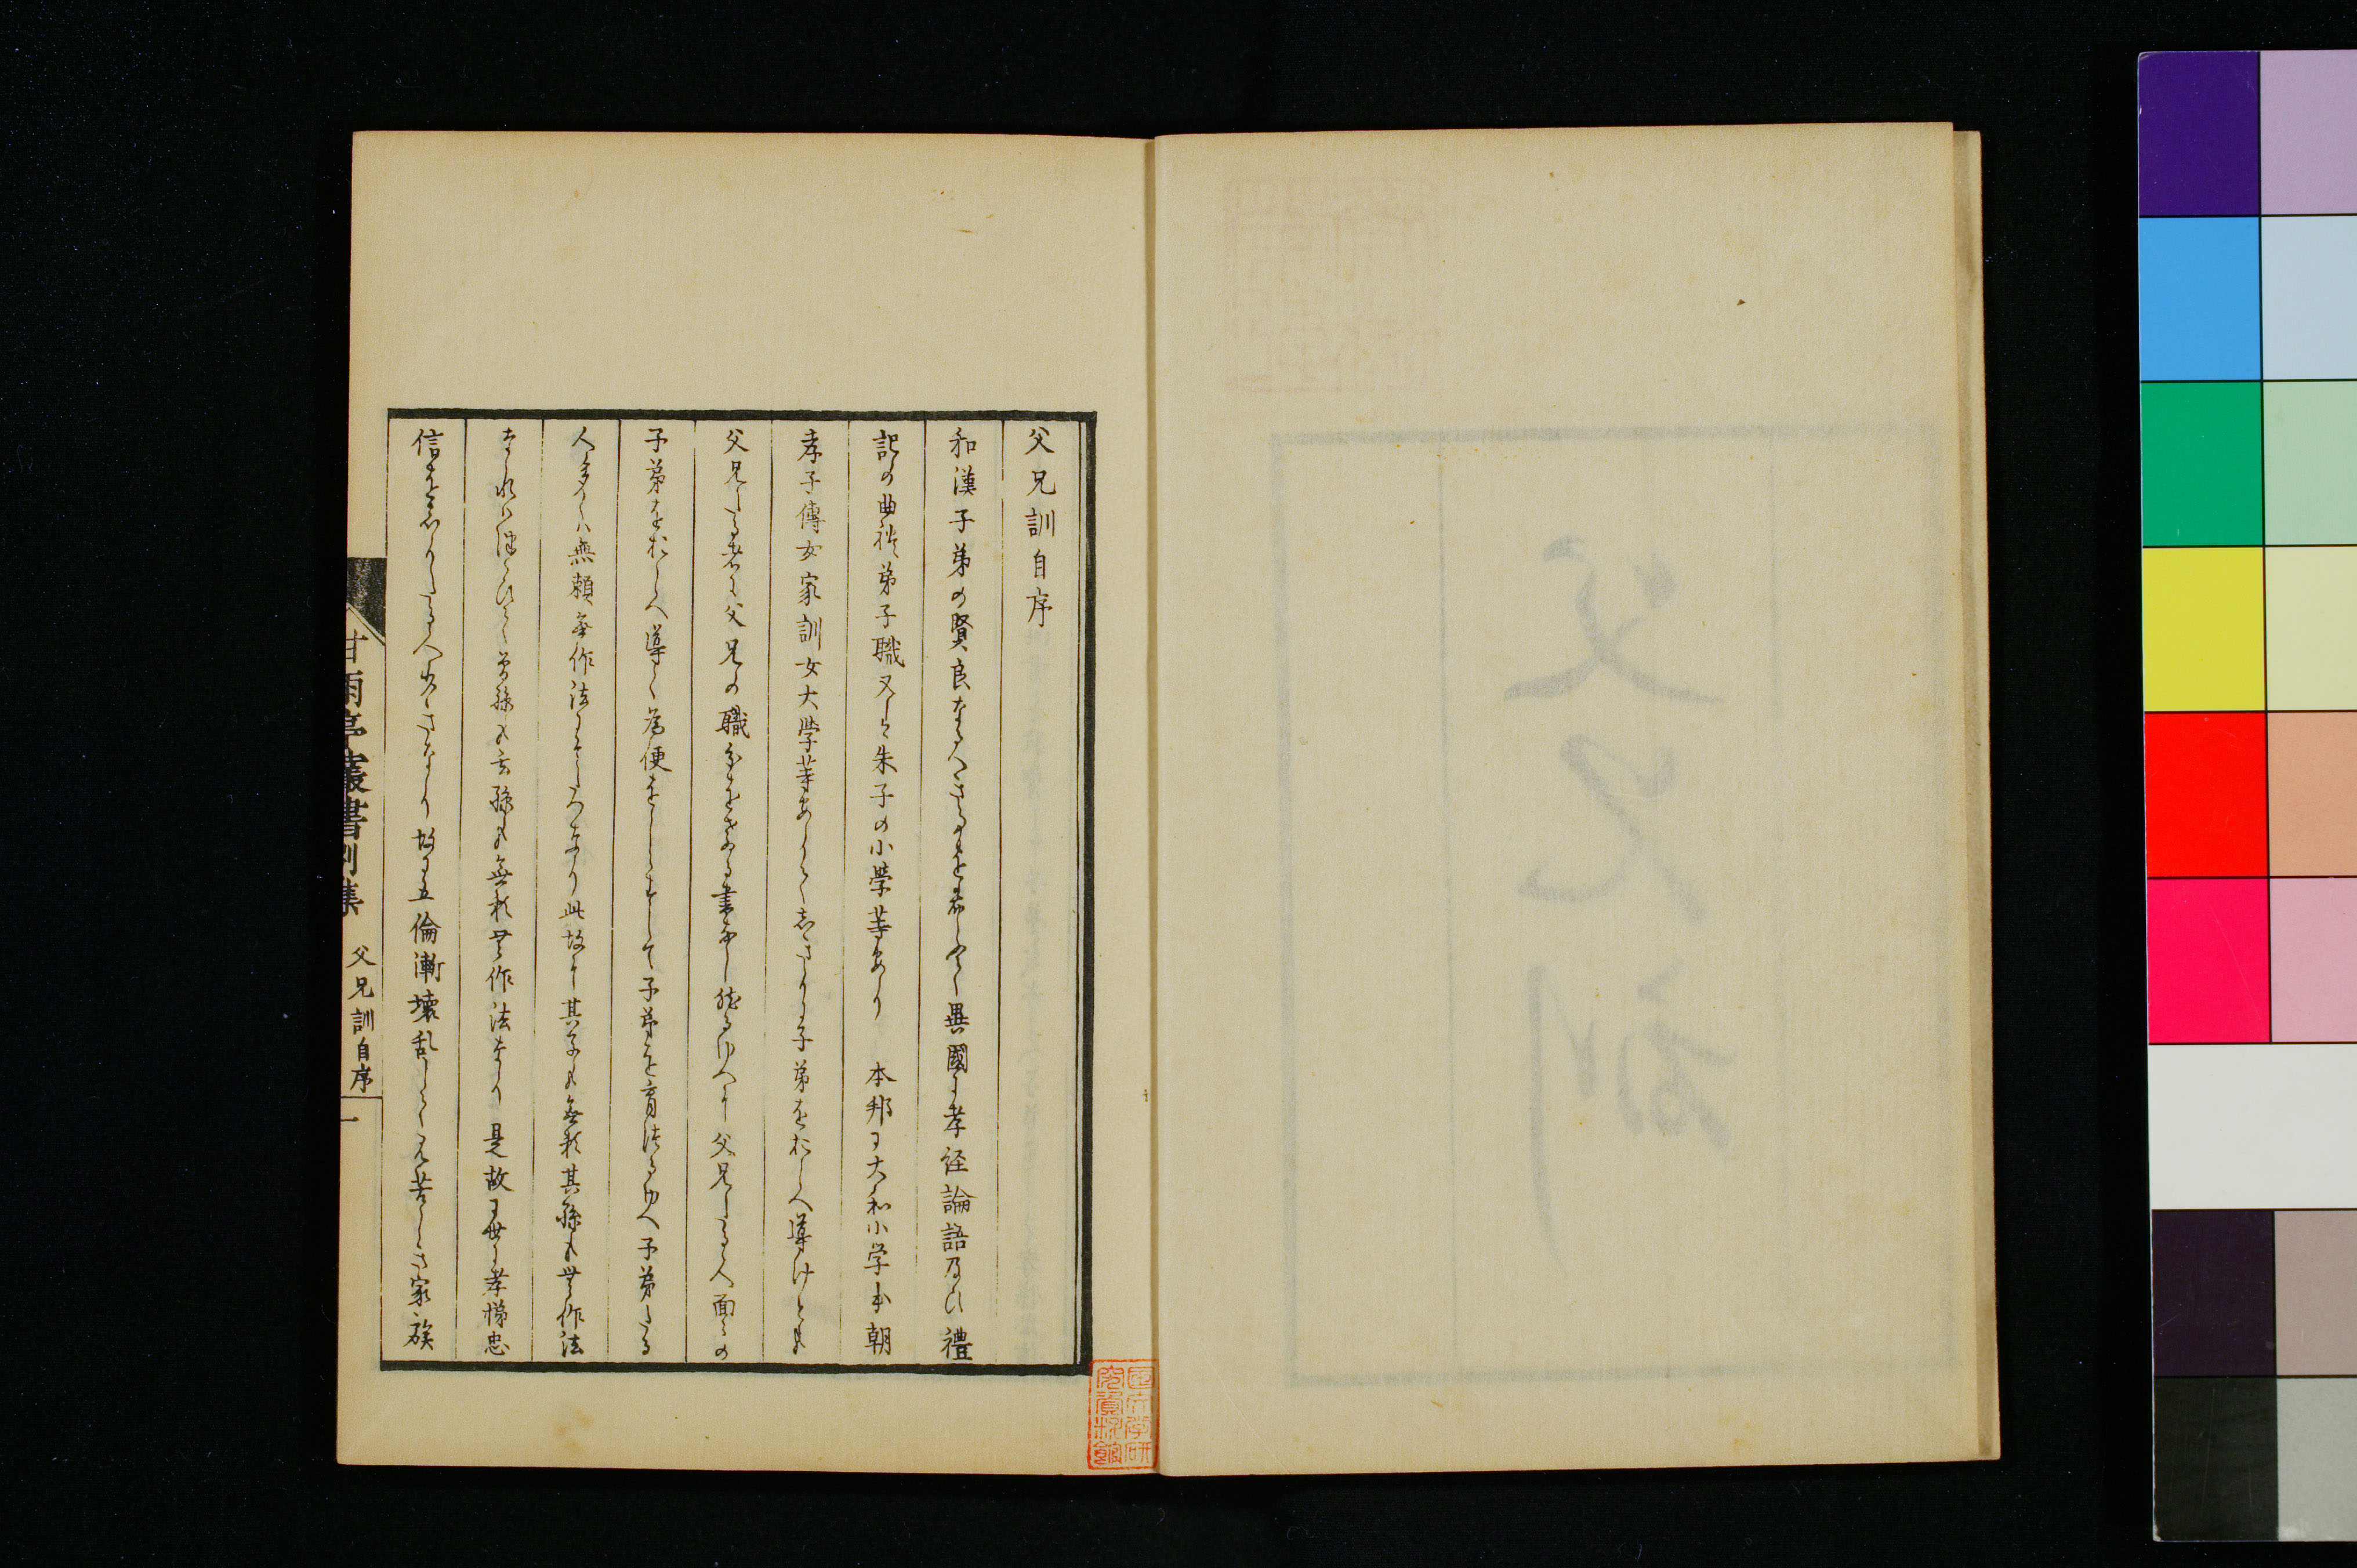 父兄訓自序
和漢子弟の賢良なるへきる事を求めて異國に孝経論語及ひ禮
記の曲礼弟子職又は朱子の小學等あり　本邦に大和小学本朝
孝子傳女家訓女大学等ありてこれより子弟をおしへ導けとも
父兄たる者に父兄の職分をおふる書なし然るゆへに父兄たる人面々の
子弟をおしへ導く為便をしらすして子弟を育はるゆへ子弟たる
人多くハ無頼無作法にそたつなり此故に其子も無頼其孫も無作法
なれは伝ひて曽孫も玄孫も無頼無作法なり是故に世に孝悌忠
信をこのみたる人少くなり故に五倫漸壊乱して見苦しき家族
甘雨亭叢書別集　父兄訓自序　一